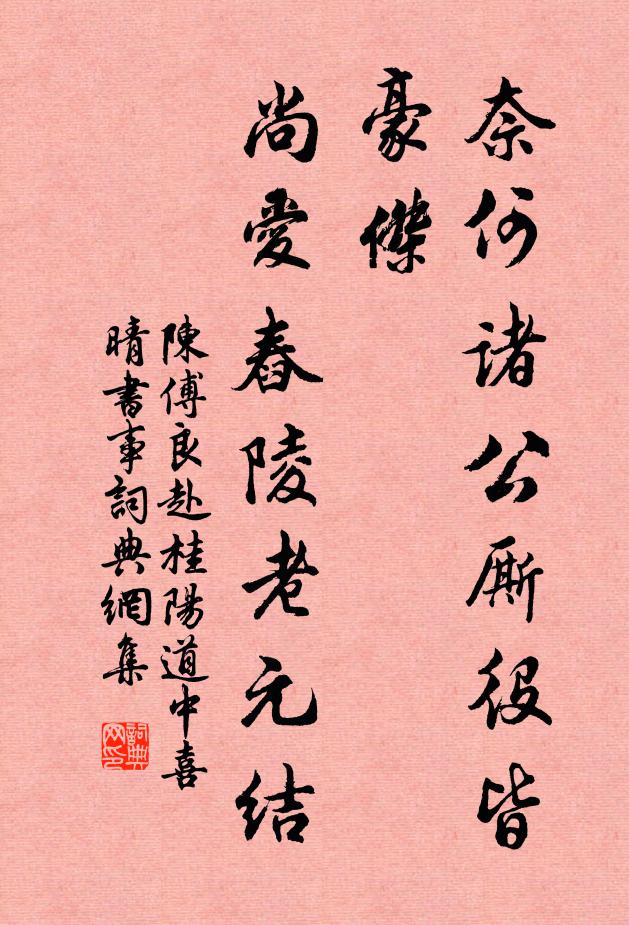 奈何诸公厮役皆
豪傑
尚愛舂陵老元结
陳傅良赴桂陽道中喜
晴書事詞典網集
詞典
网印